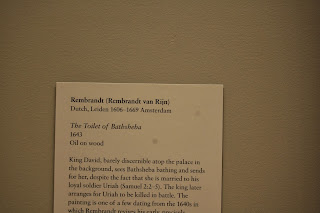 Rembrandt (Rembrandt van Rijn)
Dutch, Leiden 1606–1669 Amsterdam
The Toilet of Bathsheba
1643
Oil on wood
King David, barely discernible atop the palace in
the background, sees Bathsheba bathing and sends
for her, despite the fact that she is married to his
loyal soldier Uriah (Samuel 2:2–5). The king later
arranges for Uriah to be killed in battle. The
painting is one of a few dating from the 1640s in
which Rembrandt revises his early, precisely